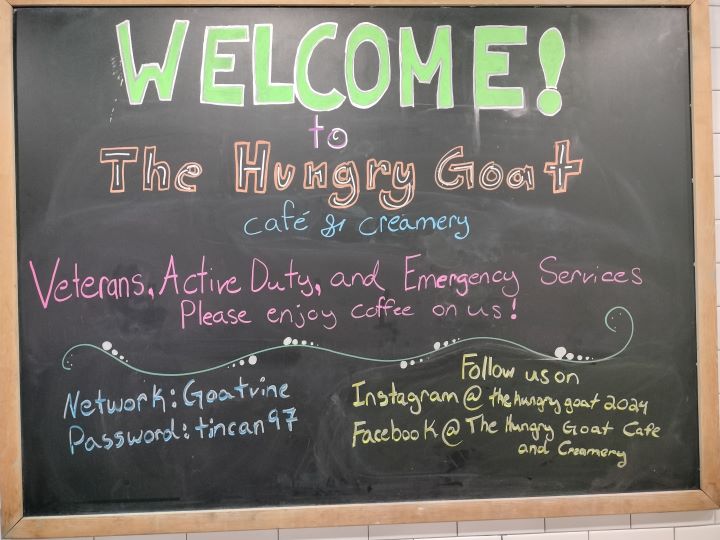 WELCOME!
to
The Hungry Goat
café & creamery
Veterans, Active Duty, and Emergency Services
Please enjoy coffee on us!
Network: Goatvine
Password: tincan97
Follow us on
Instagram @ thehungrygoat2024
Facebook @ The Hungry Goat Cafe
and Creamery